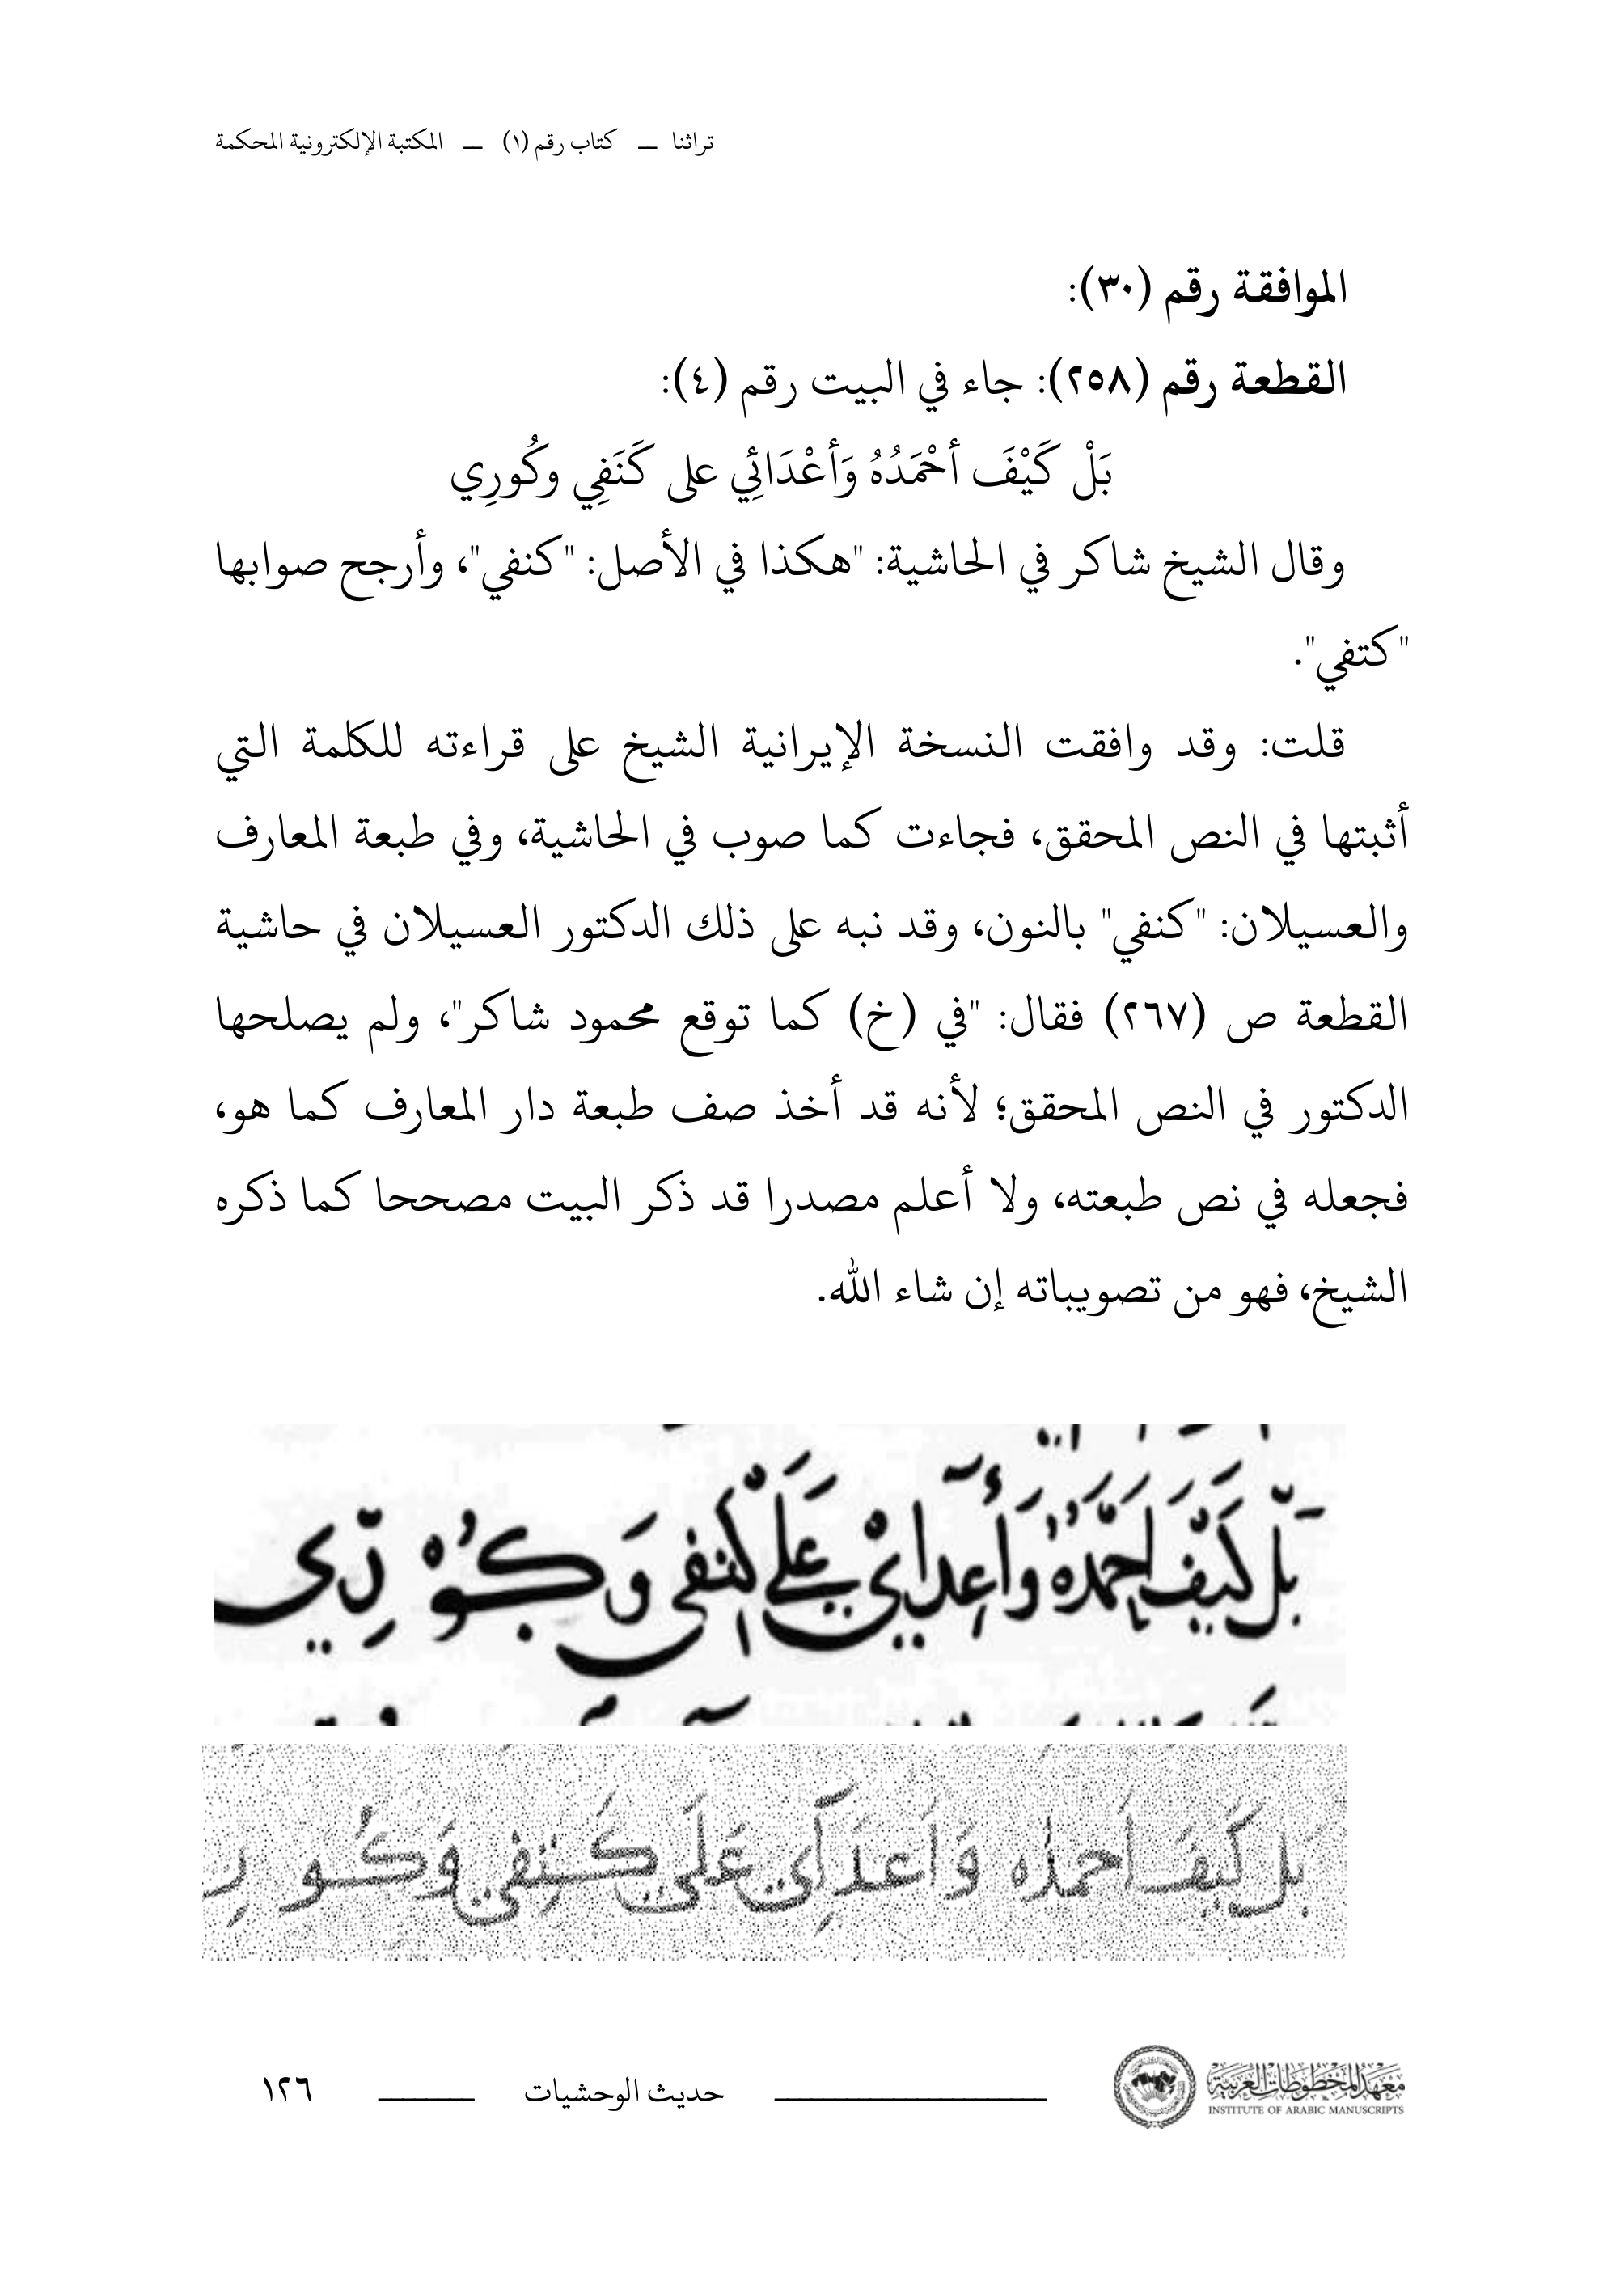 تراثنا ــ كتاب رقم (١) ــ المكتبة الإلكترونية المحكمة
الموافقة رقم (٣٠):
القطعة رقم (٢٥٨): جاء في البيت رقم (٤):
بَلْ كَيْفَ أحْمَدُهُ وَأعْدَائِي على كَنَفِي وكُورِي
وقال الشيخ شاكر في الحاشية: "هكذا في الأصل: "كنفي"، وأرجح صوابها
"كتفي".
قلت: وقد وافقت النسخة الإيرانية الشيخ على قراءته للكلمة التي
أثبتها في النص المحقق، فجاءت كما صوب في الحاشية، وفي طبعة المعارف
والعسيلان: "كنفي" بالنون، وقد نبه على ذلك الدكتور العسيلان في حاشية
القطعة ص (٢٦٧) فقال: "في (خ) كما توقع محمود شاكر"، ولم يصلحها
الدكتور في النص المحقق؛ لأنه قد أخذ صف طبعة دار المعارف كما هو،
فجعله في نص طبعته، ولا أعلم مصدرا قد ذكر البيت مصححا كما ذكره
الشيخ، فهو من تصويباته إن شاء الله.
بل كيف احمده واعداي على كنفى وكوري
بل كيف احمده واعداي على كتفي وكور
معهد المخطوطات العربية
INSTITUTE OF ARABIC MANUSCRIPTS
حديث الوحشيات
١٢٦